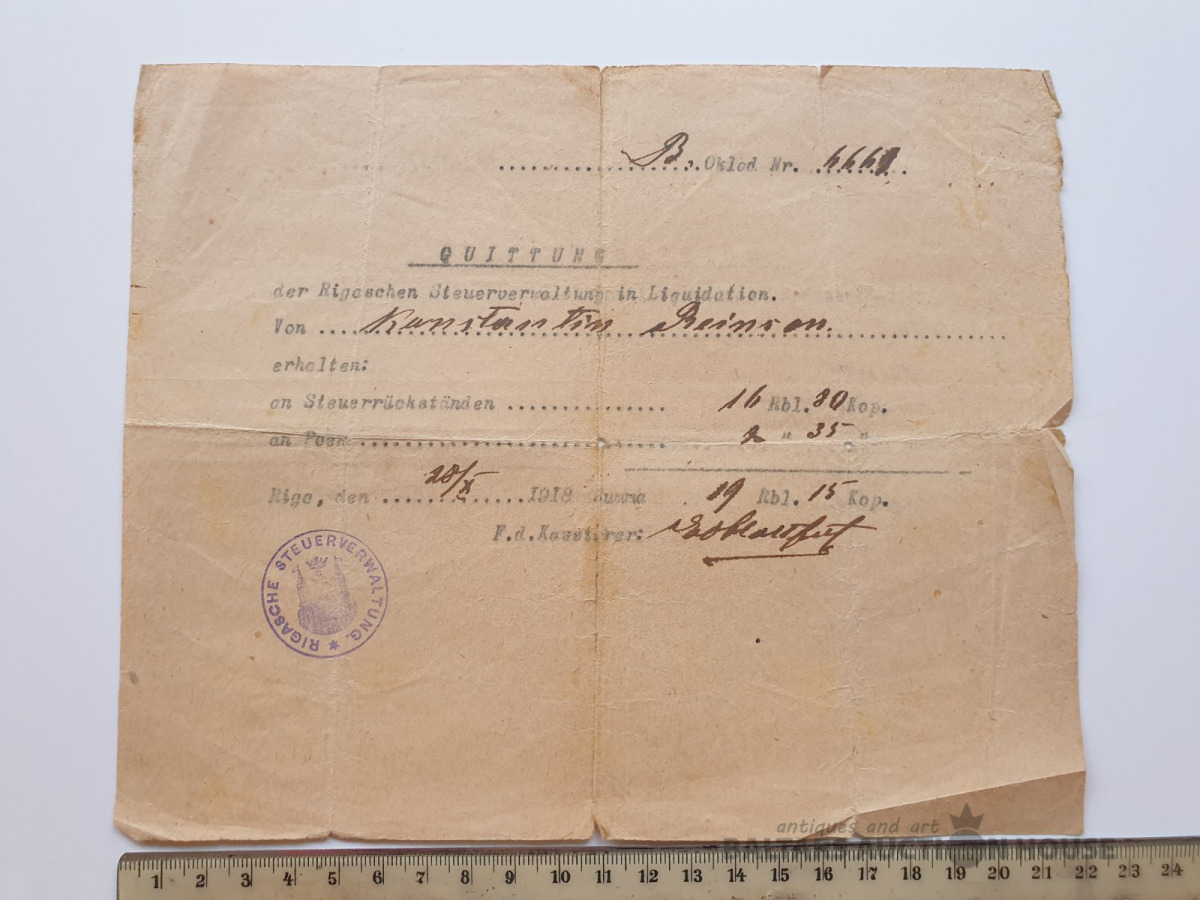 B. Oklad Nr. 6661
QUITTUNG
der Rigaschen Steuerverwaltung in Liquidation.
Von Konstantin Reinson.
erhalten:
an Steuerrückständen 16 Rbl. 80 Kop.
an Poen 2 " 35 "
Riga, den 28/X 1918 Summa 19 Rbl. 15 Kop.
F.d.Kassierer:
RIGASCHE STEUERVERWALTUNG. *
antiques and art
1 2 3 4 5 6 7 8 9 10 11 12 13 14 15 16 17 18 19 20 21 22 23 24